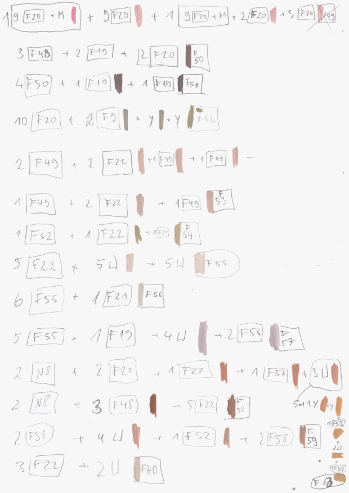 1 9 F20 + M + 9 F20 + 1 9 F20 + M + 2 F20 + 3 F20
3 F48 + 2 F19 + 2 F20 F50
4 F50 + 1 F19 + 1 F19 F51
10 F20 + 2 F9 + Y + Y
2 F49 + 2 F22 + 1 F49 + 1 F49 -
1 F49 + 2 F22 + 1 F49 F53
1 F52 + 1 F22 F54
5 F22 + 5 W + 5 W F55
6 F55 + 1 F21 F56
5 F55 + 1 F19 + 4 W + 2 F56 F57
2 N8 + 2 F20 + 1 F22 + 1 F57 + 3 W
2 N8 + 3 F48 - 5 F22 F58 5 + 1 Y + Y
2 F58 + 4 W + 1 F52 + 2 F58 F59
3 F22 + 2 W F60